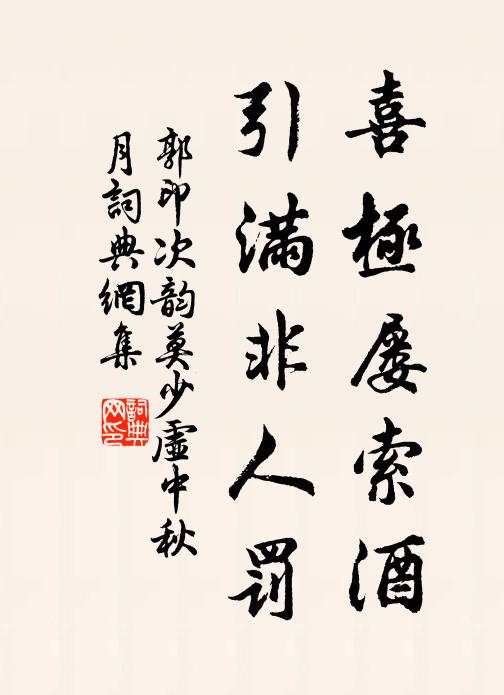 喜極屡索酒
引滿非人罰
郭印次韵莫少虛中秋
月詞典網集
詞典網印